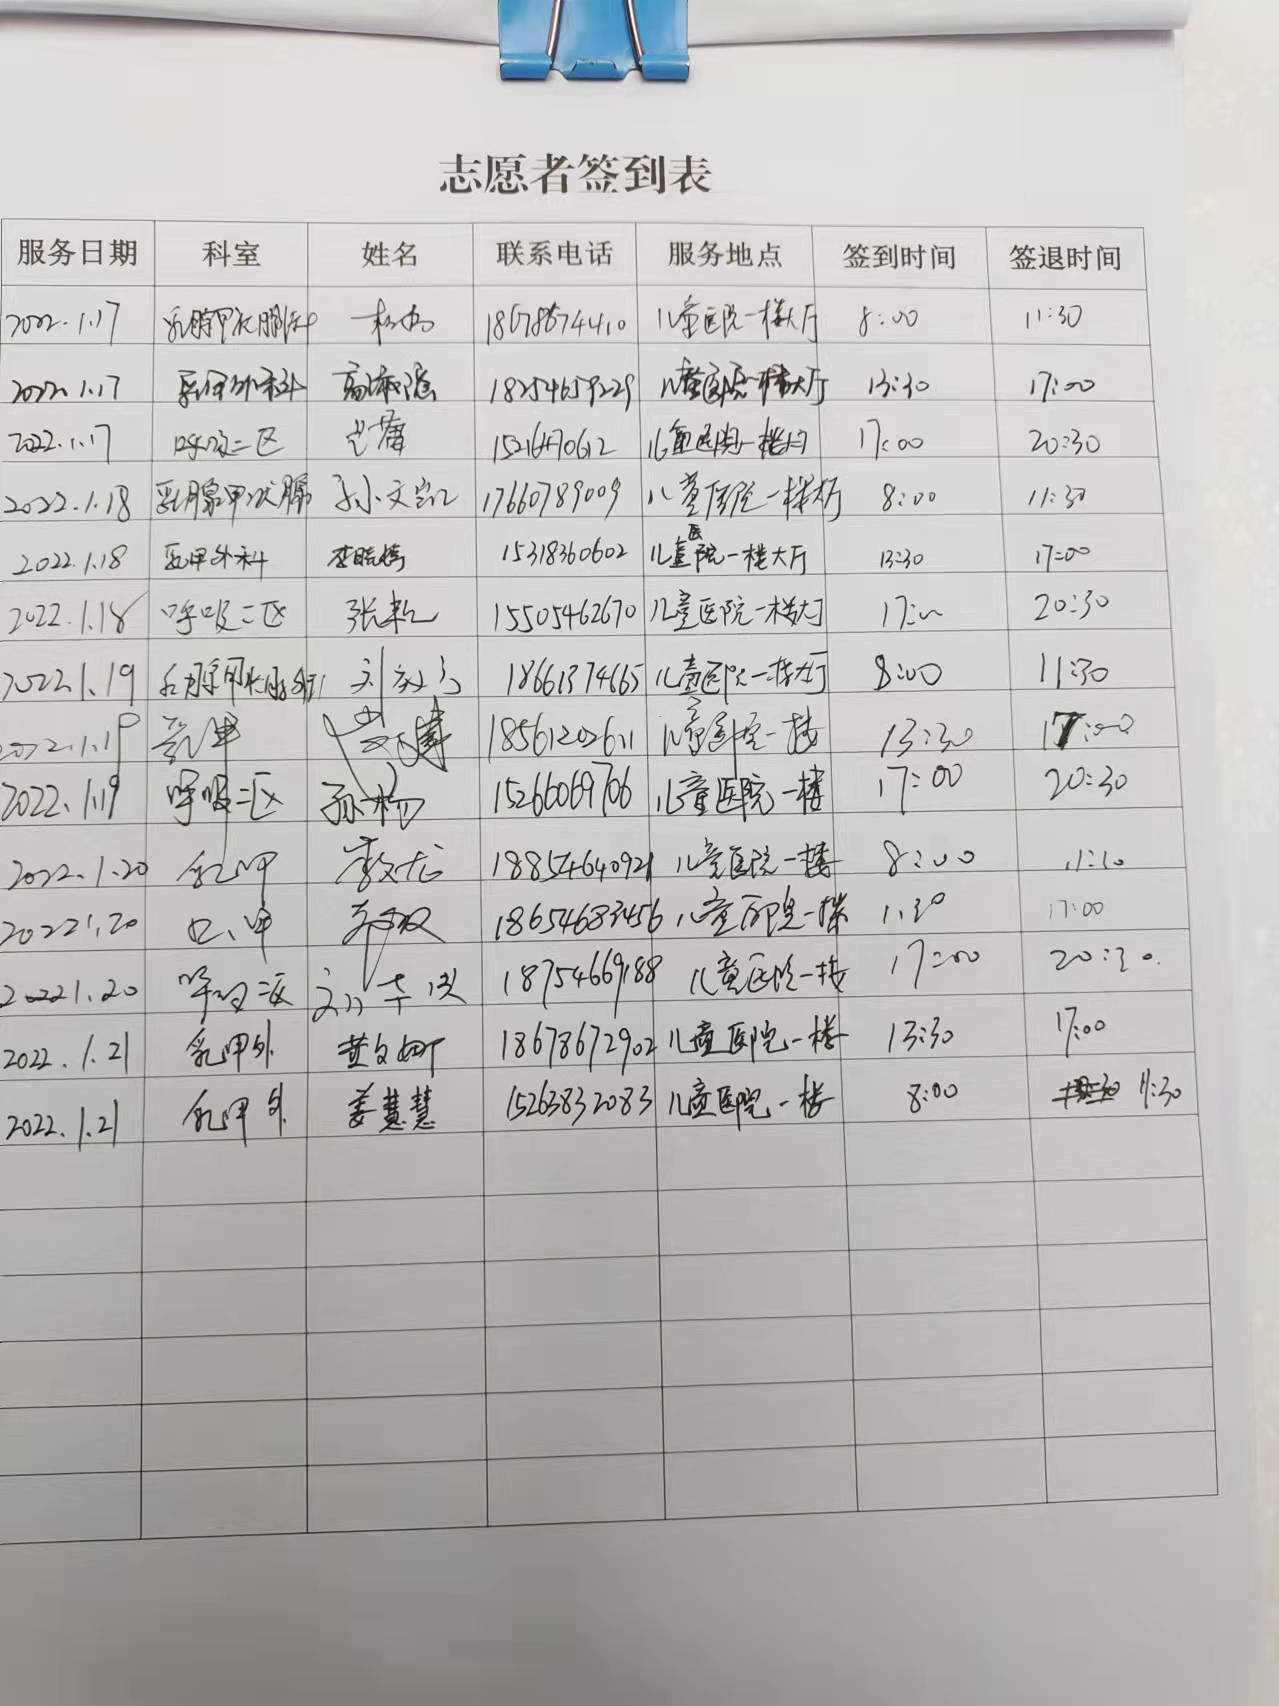 志愿者签到表
服务日期 科室 姓名 联系电话 服务地点 签到时间 签退时间
2022.1.17 乳腺甲状腺外科 18678674410 儿童医院一楼大厅 8:00 11:30
2022.1.17 乳甲外科 18254659229 儿童医院一楼大厅 13:30 17:00
2022.1.17 呼吸二区 儿童医院一楼大厅 17:00 20:30
2022.1.18 乳腺甲状腺 孙文凯 17660789009 儿童医院一楼大厅 8:00 11:30
2022.1.18 乳甲外科 李晓婷 15318360602 儿童医院一楼大厅 13:30 17:00
2022.1.18 呼吸二区 张 15505462670 儿童医院一楼大厅 17:00 20:30
2022.1.19 乳腺甲状腺外科 刘 18661374665 儿童医院一楼大厅 8:00 11:30
2022.1.19 乳甲 18561202611 儿童医院一楼 13:30 17:00
2022.1.19 呼吸二区 孙杨 15266069706 儿童医院一楼 17:00 20:30
2022.1.20 乳甲 李文龙 18854640921 儿童医院一楼 8:00 11:30
2022.1.20 甲 18654683456 儿童医院一楼 1:30 17:00
2022.1.20 呼吸二区 刘 18754669188 儿童医院一楼 17:00 20:30.
2022.1.21 乳甲外 黄文 18678672902 儿童医院一楼 13:30 17:00
2022.1.21 乳甲外 姜慧慧 15263832083 儿童医院一楼 8:00 11:30